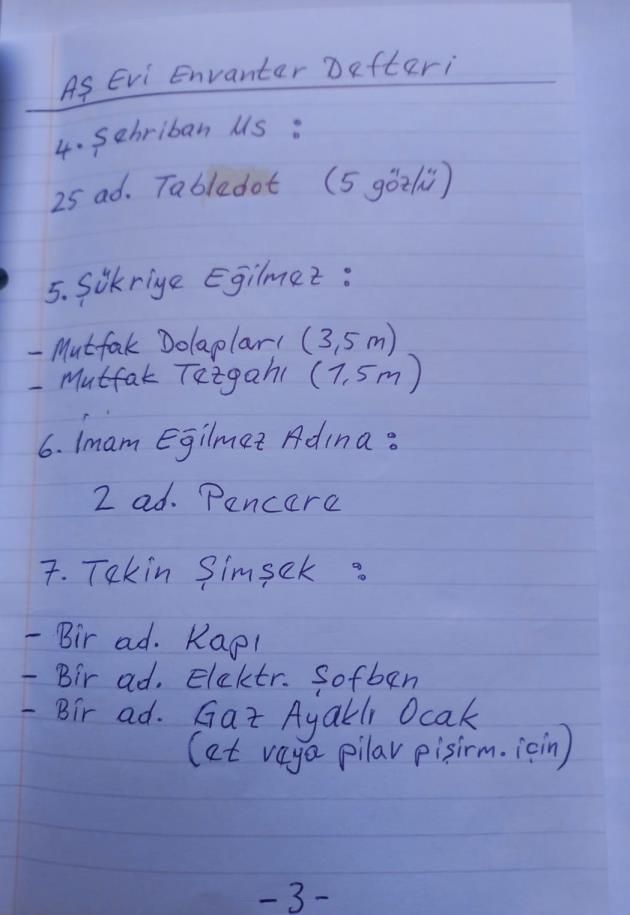 Aş Evi Envanter Defteri
4. Şehriban Us :
25 ad. Tabledot (5 gözlü)
5. Şükriye Eğilmez :
- Mutfak Dolapları (3,5 m)
- Mutfak Tezgahı (1,5 m)
6. İmam Eğilmez Adına :
2 ad. Pencere
7. Tekin Şimşek :
- Bir ad. Kapı
- Bir ad. Elektr. Şofben
- Bir ad. Gaz Ayaklı Ocak
(et veya pilav pişirm. için)
- 3 -